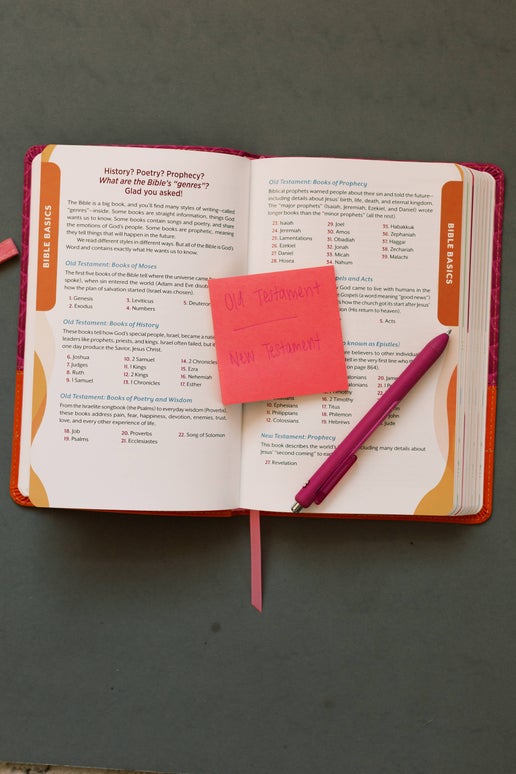 BIBLE BASICS
History? Poetry? Prophecy?
What are the Bible's "genres"?
Glad you asked!
The Bible is a big book, and you'll find many styles of writing—called
"genres"—inside. Some books are straight information, things God
wants us to know. Some books contain songs and poetry, and share
the emotions of God's people. Some books are prophetic, meaning
they tell things that will happen in the future.
We read different styles in different ways. But all of the Bible is God's
Word and contains exactly what He wants us to know.
Old Testament: Books of Moses
The first five books of the Bible tell where the universe came
spoke), when sin entered the world (Adam and Eve
how the plan of salvation started (Israel was chosen).
1. Genesis
2. Exodus
3. Leviticus
4. Numbers
5.
Old Testament: Books of History
These books tell how God's special people, Israel, became a
leaders like prophets, priests, and kings. Israel often failed, but
one day produce the Savior, Jesus Christ.
6. Joshua
7. Judges
8. Ruth
9. 1 Samuel
10. 2 Samuel
11. 1 Kings
12. 2 Kings
13. 1 Chronicles
14. 2 Chronicles
15. Ezra
16. Nehemiah
17. Esther
Old Testament: Books of Poetry and Wisdom
From the Israelite songbook (the Psalms) to everyday wisdom (Proverbs),
these books address pain, fear, happiness, devotion, enemies, trust,
love, and every other experience of life.
18. Job
19. Psalms
20. Proverbs
21. Ecclesiastes
22. Song of Solomon
Old Testament
New Testament
Old Testament: Books of Prophecy
Biblical prophets warned people about their sin and told the future—
including details about Jesus' birth, life, death, and eternal kingdom.
The "major prophets" (Isaiah, Jeremiah, Ezekiel, and Daniel) wrote
longer books than the "minor prophets" (all the rest).
23. Isaiah
24. Jeremiah
25. Lamentations
26. Ezekiel
27. Daniel
28. Hosea
29. Joel
30. Amos
31. Obadiah
32. Jonah
33. Micah
34. Nahum
35. Habakkuk
36. Zephaniah
37. Haggai
38. Zechariah
39. Malachi
and Acts
God came to live with humans in the
Gospels (a word meaning "good news")
how the church got its start after Jesus'
(His return to heaven).
5. Acts
known as Epistles)
believers to other individuals
in the very first line who
page 864).
10. Ephesians
11. Philippians
12. Colossians
16. 2 Timothy
17. Titus
18. Philemon
19. Hebrews
New Testament: Prophecy
This book describes the world's including many details about
Jesus' "second coming" to
27. Revelation
BIBLE BASICS